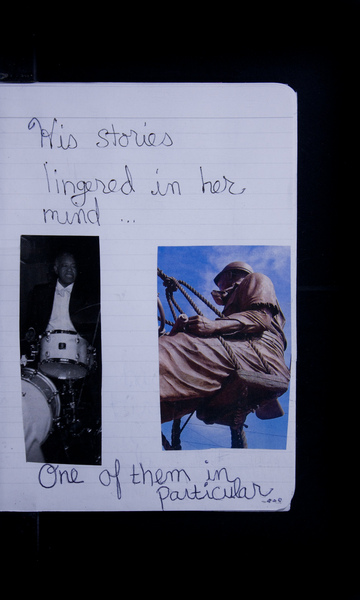 His stories
lingered in her
mind ...
One of them in
particular